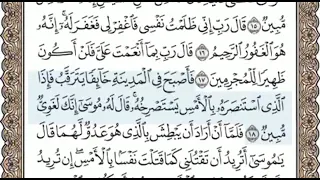 مُّبِينٌ ١٥ قَالَ رَبِّ إِنِّى ظَلَمْتُ نَفْسِى فَٱغْفِرْ لِى فَغَفَرَ لَهُۥٓ ۚ إِنَّهُۥ
هُوَ ٱلْغَفُورُ ٱلرَّحِيمُ ١٦ قَالَ رَبِّ بِمَآ أَنْعَمْتَ عَلَىَّ فَلَنْ أَكُونَ
ظَهِيرًا لِّلْمُجْرِمِينَ ١٧ فَأَصْبَحَ فِى ٱلْمَدِينَةِ خَآئِفًا يَتَرَقَّبُ فَإِذَا
ٱلَّذِى ٱسْتَنصَرَهُۥ بِٱلْأَمْسِ يَسْتَصْرِخُهُۥ ۚ قَالَ لَهُۥ مُوسَىٰٓ إِنَّكَ لَغَوِىٌّ
مُّبِينٌ ١٨ فَلَمَّآ أَنْ أَرَادَ أَن يَبْطِشَ بِٱلَّذِى هُوَ عَدُوٌّ لَّهُمَا قَالَ
يَـٰمُوسَىٰٓ أَتُرِيدُ أَن تَقْتُلَنِى كَمَا قَتَلْتَ نَفْسًۢا بِٱلْأَمْسِ ۖ إِن تُرِيدُ